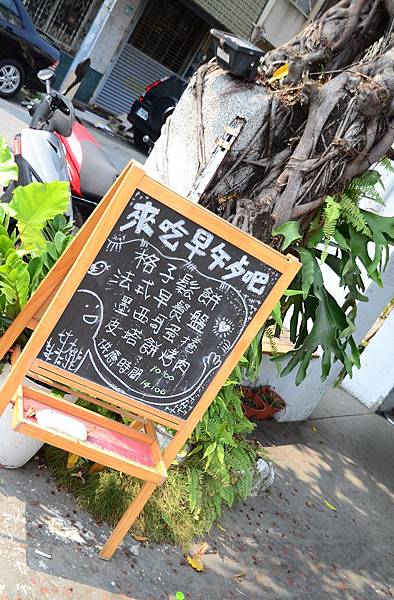 來吃早午夕吧
格子鬆餅
法式早餐盤
墨西哥蛋捲
皮塔餅烤肉
供應時間
10:00
14:00